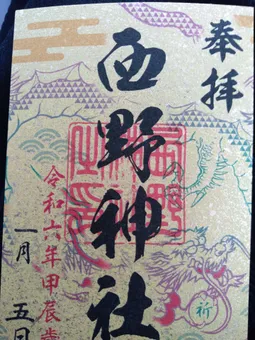 奉拝
西野神社
令和六年甲辰歳
一月五日
祈